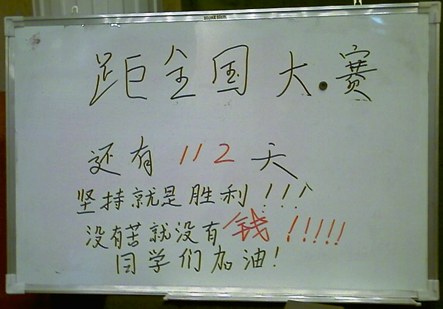 距全国大赛
还有112天
坚持就是胜利!!!
没有苦就没有钱!!!!!
同学们加油!